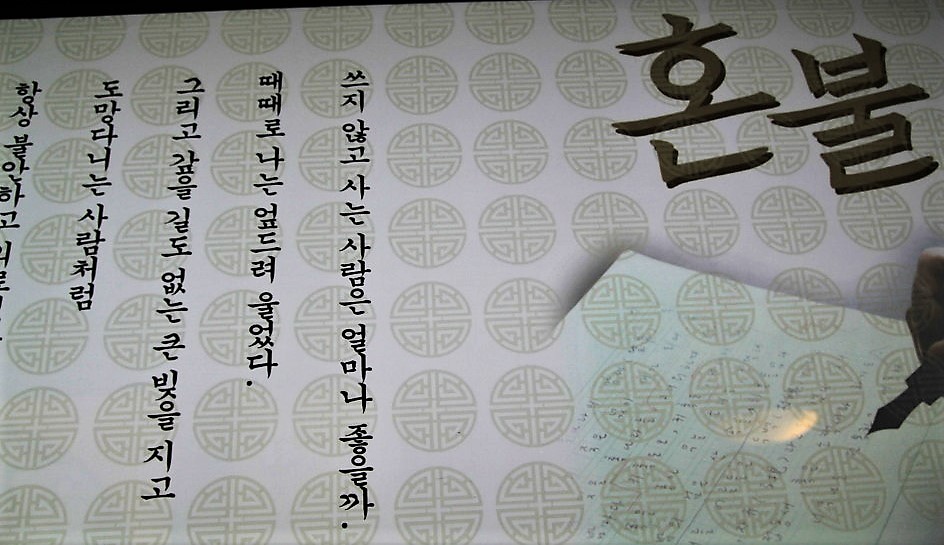 혼불
쓰지 않고 사는 사람은 얼마나 좋을까.
때때로 나는 엎드려 울었다.
그리고 갚을 길도 없는 큰 빚을 지고
도망다니는 사람처럼
항상 불안하고